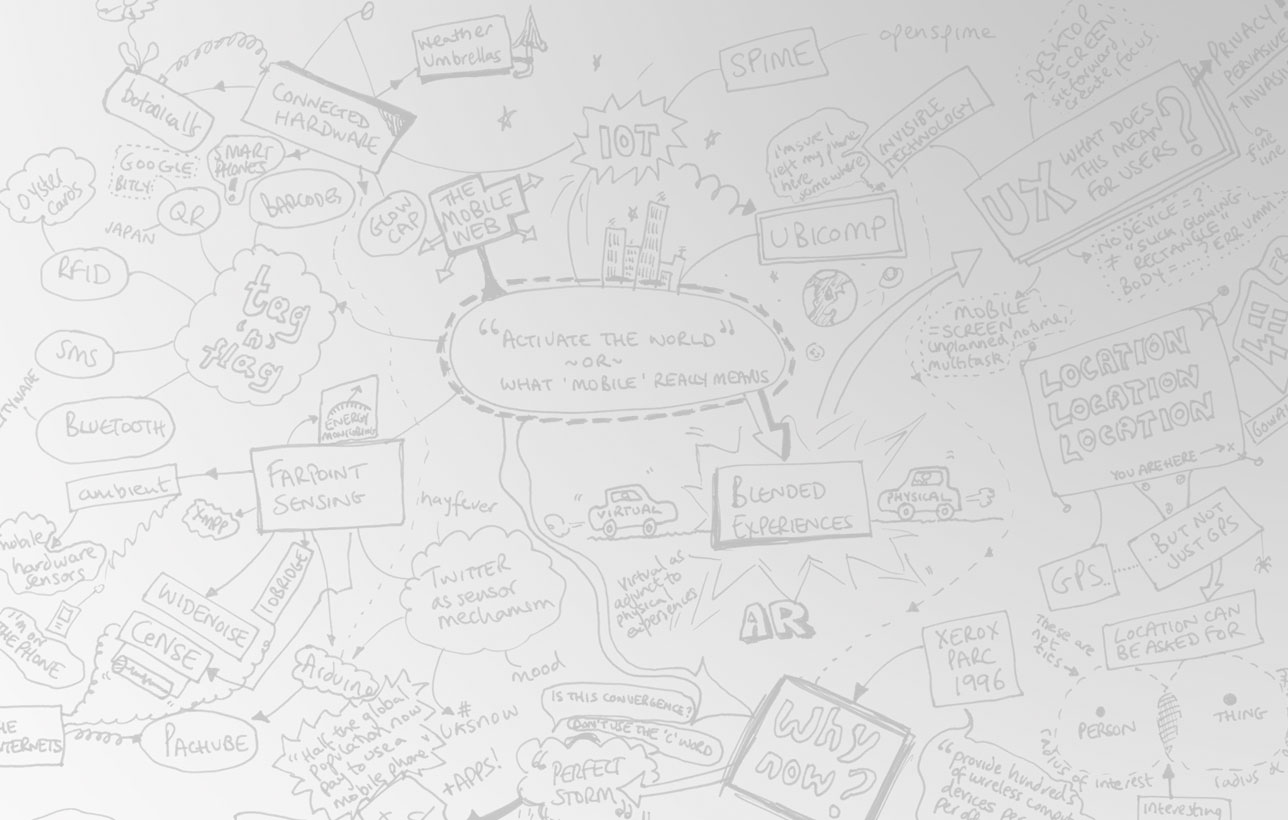 weather
umbrellas
SPIME
openspime
DESKTOP
= SCREEN
sit forward,
create, focus
PRIVACY
PERVASIVE
INVASIVE
a
fine
line
botanicalls
CONNECTED
HARDWARE
IOT
I'm sure I
left my phone
here
somewhere
INVISIBLE
TECHNOLOGY
UX WHAT DOES
THIS MEAN
FOR USERS?
GOOGLE
BITLY
SMART
PHONES
QR
BARCODES
JAPAN
GLOW
CAP
THE
MOBILE
WEB
UBICOMP
NO DEVICE = ?
≠ "SLICK GLOWING
RECTANGLE"
BODY = .... ? ERR UMMM
cards
RFID
tag
'n'
flag
SMS
BLUETOOTH
"ACTIVATE THE WORLD"
~OR~
WHAT 'MOBILE' REALLY MEANS
MOBILE
= SCREEN
unplanned, no time,
multitask
LOCATION
LOCATION
LOCATION
YOU ARE HERE → x
ENERGY
MONITORING
FARPOINT
SENSING
ambient
XMPP
hayfever
VIRTUAL
BLENDED
EXPERIENCES
PHYSICAL
...BUT NOT
JUST GPS
GPS
mobile
hardware
sensors
I'M ON
THE PHONE
WIDENOISE
CeNSE
IOBRIDGE
TWITTER
as sensor
mechanism
virtual as
adjunct to
physical
experiences
AR
XEROX
PARC
1996
LOCATION CAN
BE ASKED FOR
These are
not
tits →
mood
Arduino
# UKSNOW
"Half the global
population now
pay to use a
mobile phone"
+APPS!
IS THIS CONVERGENCE?
DON'T USE THE 'C' WORD
WHY
NOW?
"PERFECT
STORM"
THE
INTERNETS
PACHUBE
PERSON
THING
radius of interest
radius
interesting
"provide hundreds
of wireless
devices per